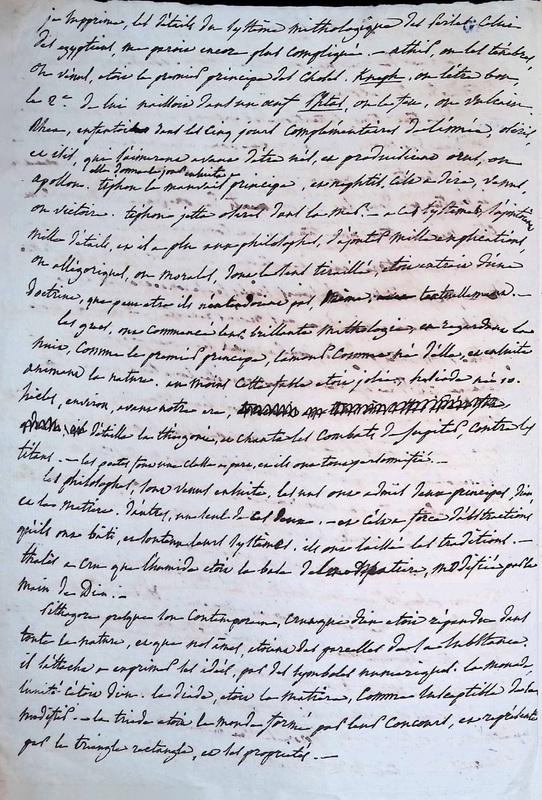 je supprime, les détails du système mithologique des
des egyptiens me paroit encore plus compliqué. – athis, ou les ténèbres,
ou venus, etoit le premier principe des choses. Kneph, ou l'être bon,
le 2e. de lui naissoit dans un œuf Phtas, ou le feu, ou vulcain.
Rhea, enfanta dans les cinq jours complementaires de l'année, osiris,
et isis, que s'aimerent avant d'être nés, et produisirent orus, ou
elle donna le jour ensuite a
apollon. tiphon le mauvais principe, et nephtis, c'est a dire, venus,
ou victoire. tiphon jetta osiris dans la mer. – a ces systèmes, s'ajoutent
mille détails, et il a plu aux philosophes, d'ajouter mille explications,
ou allégoriques, ou morales, dont le sens tiraillé, etoit extrait d'une
doctrine, que peut etre ils n'entendoient pas, même textuellement. –
les grecs, ont commencé leur brillante mithologie, en regardant la
nuit, comme le premier principe, l'amour comme né d'elle, et ensuite
animant la nature. au moins cette fable etoit jolie, hésiode né 10.
siècles, environ, avant notre ere,
détaille la théogonie, et chante les combats de jupiter, contre les
titans. – les poetes sont une classe a part, et ils ont tout
les philosophes, sont venus ensuite, les uns ont admis deux principes, dieu
et la matière. d'autres, un seul de ces deux. – et c'est a force d'abstractions
qu'ils ont bâti, et soutenu leurs systèmes, ils ont laissé les traditions. –
thalès a cru que l'humide etoit la base de la matière, modifiée par la
main de Dieu. –
Pithagore presque son contemporain, crut que dieu etoit répandu dans
toute la nature, et que nos ames, etoient des parcelles de sa substance.
il s'attacha a exprimer ses idées, par des symboles numeriques. la monade,
l'unité c'étoit dieu. la diade, etoit la matière, comme susceptible d'être
modifiée. – la triade etoit le monde formé par leur concours, et représenté
par le triangle rectangle, et ses propriétés. –